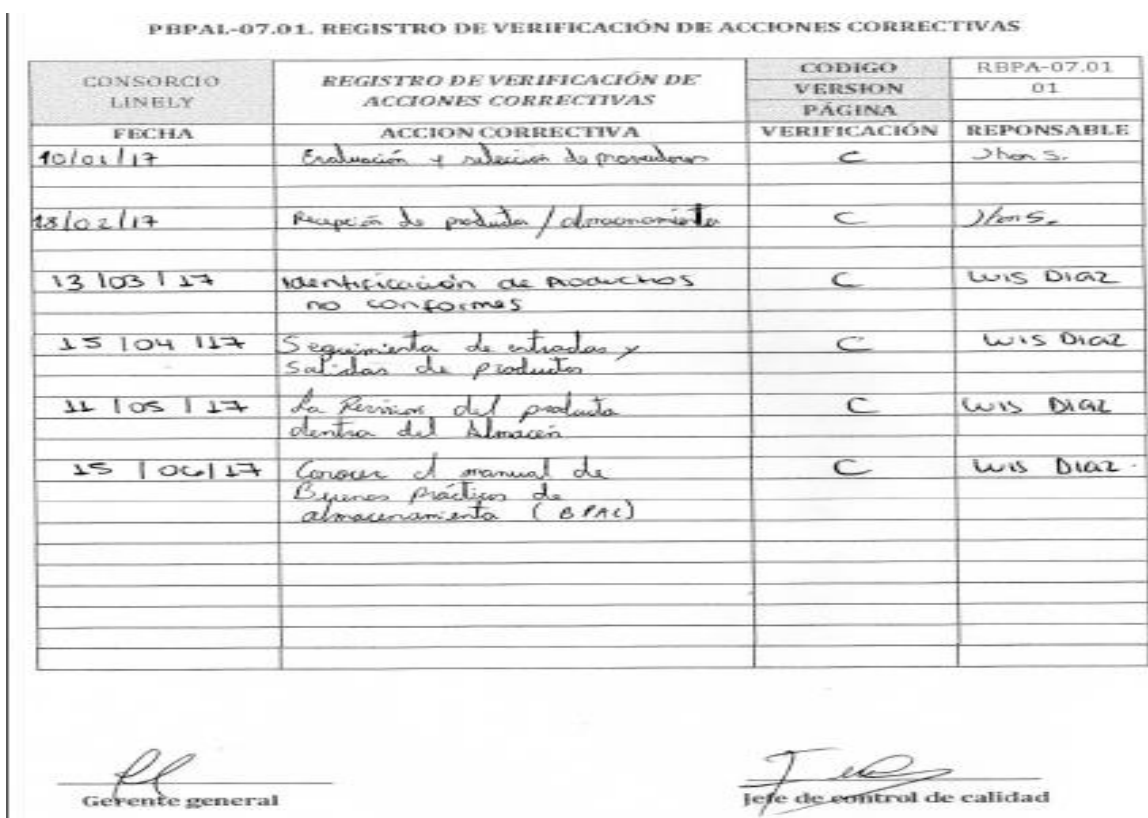 PBPAL-07.01. REGISTRO DE VERIFICACIÓN DE ACCIONES CORRECTIVAS
CONSORCIO LINELY
REGISTRO DE VERIFICACIÓN DE ACCIONES CORRECTIVAS
CODIGO RBPA-07.01
VERSION 01
PÁGINA
FECHA ACCION CORRECTIVA VERIFICACIÓN REPONSABLE
10/01/17 Evaluación y selección de proveedores C Jhon S.
18/02/17 Recepción de productos / almacenamiento C Jhon S.
13/03/17 Identificación de Productos C Luis Diaz
no conformes
15/04/17 Seguimiento de entradas y C Luis Diaz
Salidas de productos
11/05/17 La Revision del producto C Luis Diaz
dentro del Almacén
15/06/17 Conocer el manual de C Luis Diaz.
Buenas prácticas de
almacenamiento (BPAL)
Gerente general
Jefe de control de calidad